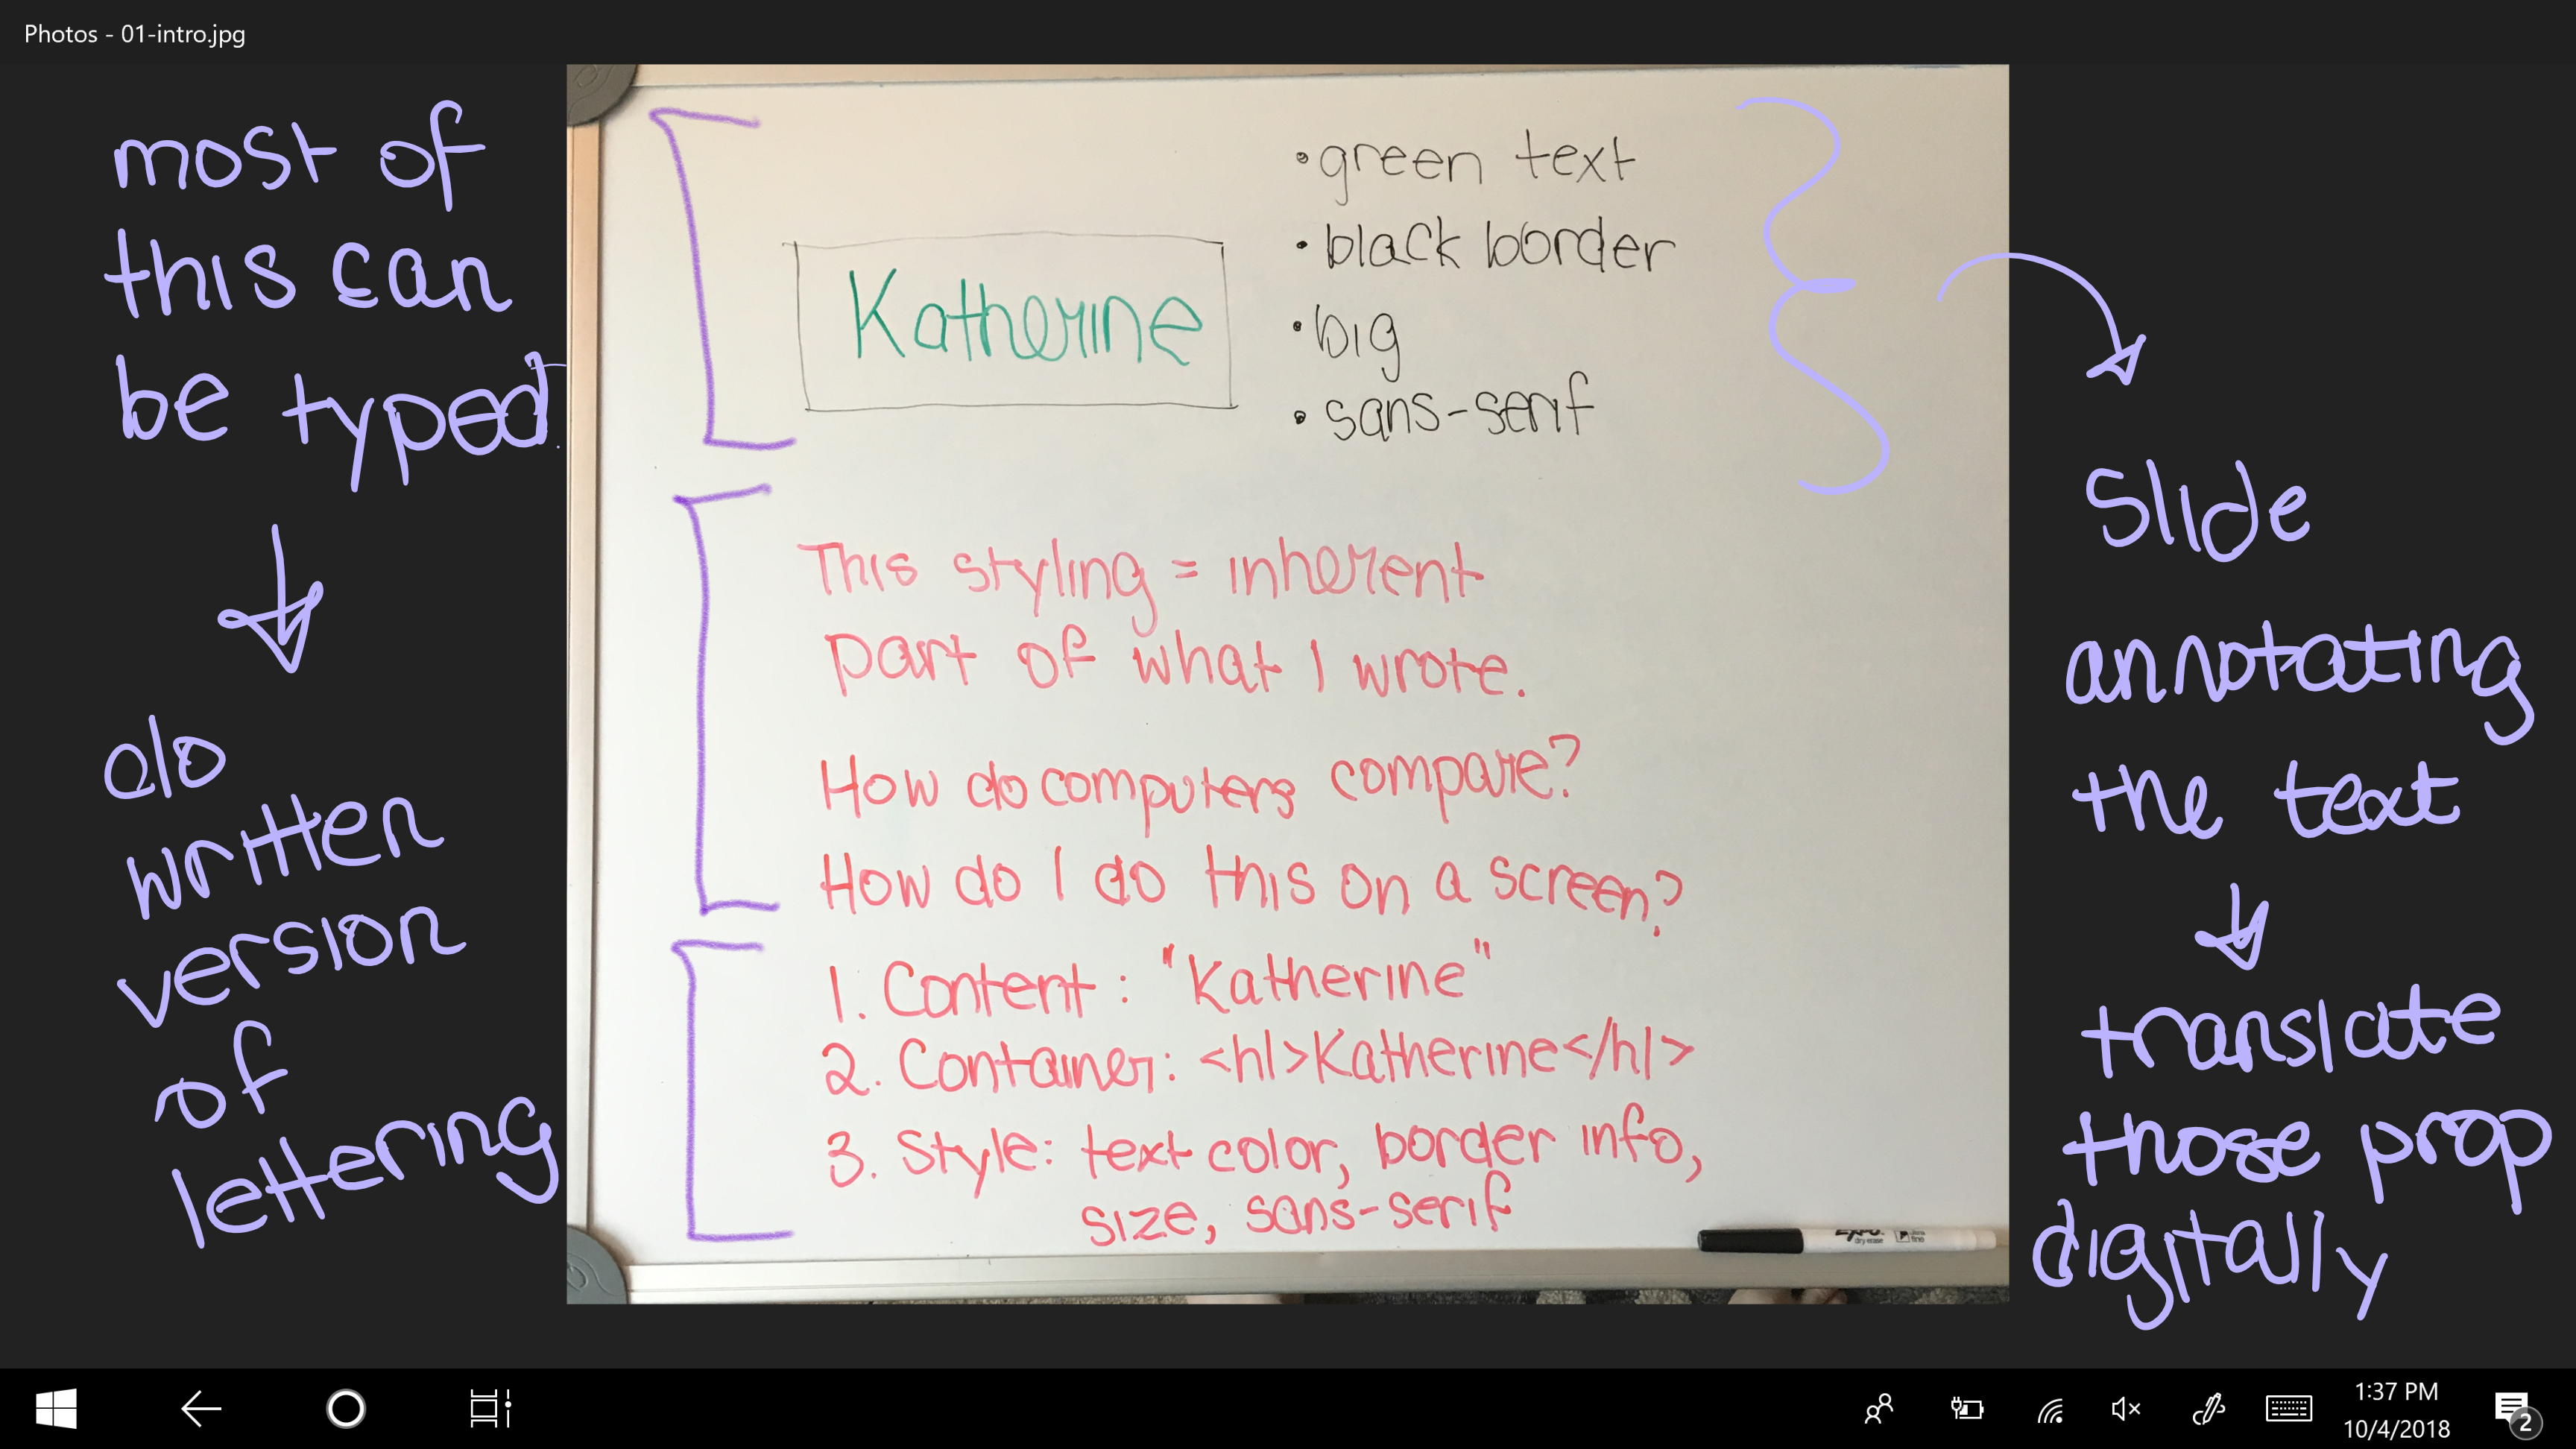 Photos - 01-intro.jpg
most of
this can
be typed.
do
written
version
of
lettering
Katherine
•green text
•black border
•big
•sans-serif
This styling = inherent
part of what I wrote.
How do computers compare?
How do I do this on a screen?
1. Content: "Katherine"
2. Container: <h1>Katherine</h1>
3. Style: text color, border info,
size, sans-serif
EXPO
dry erase
fine
Slide
annotating
the text
translate
those prop
digitally
1:37 PM
10/4/2018
2